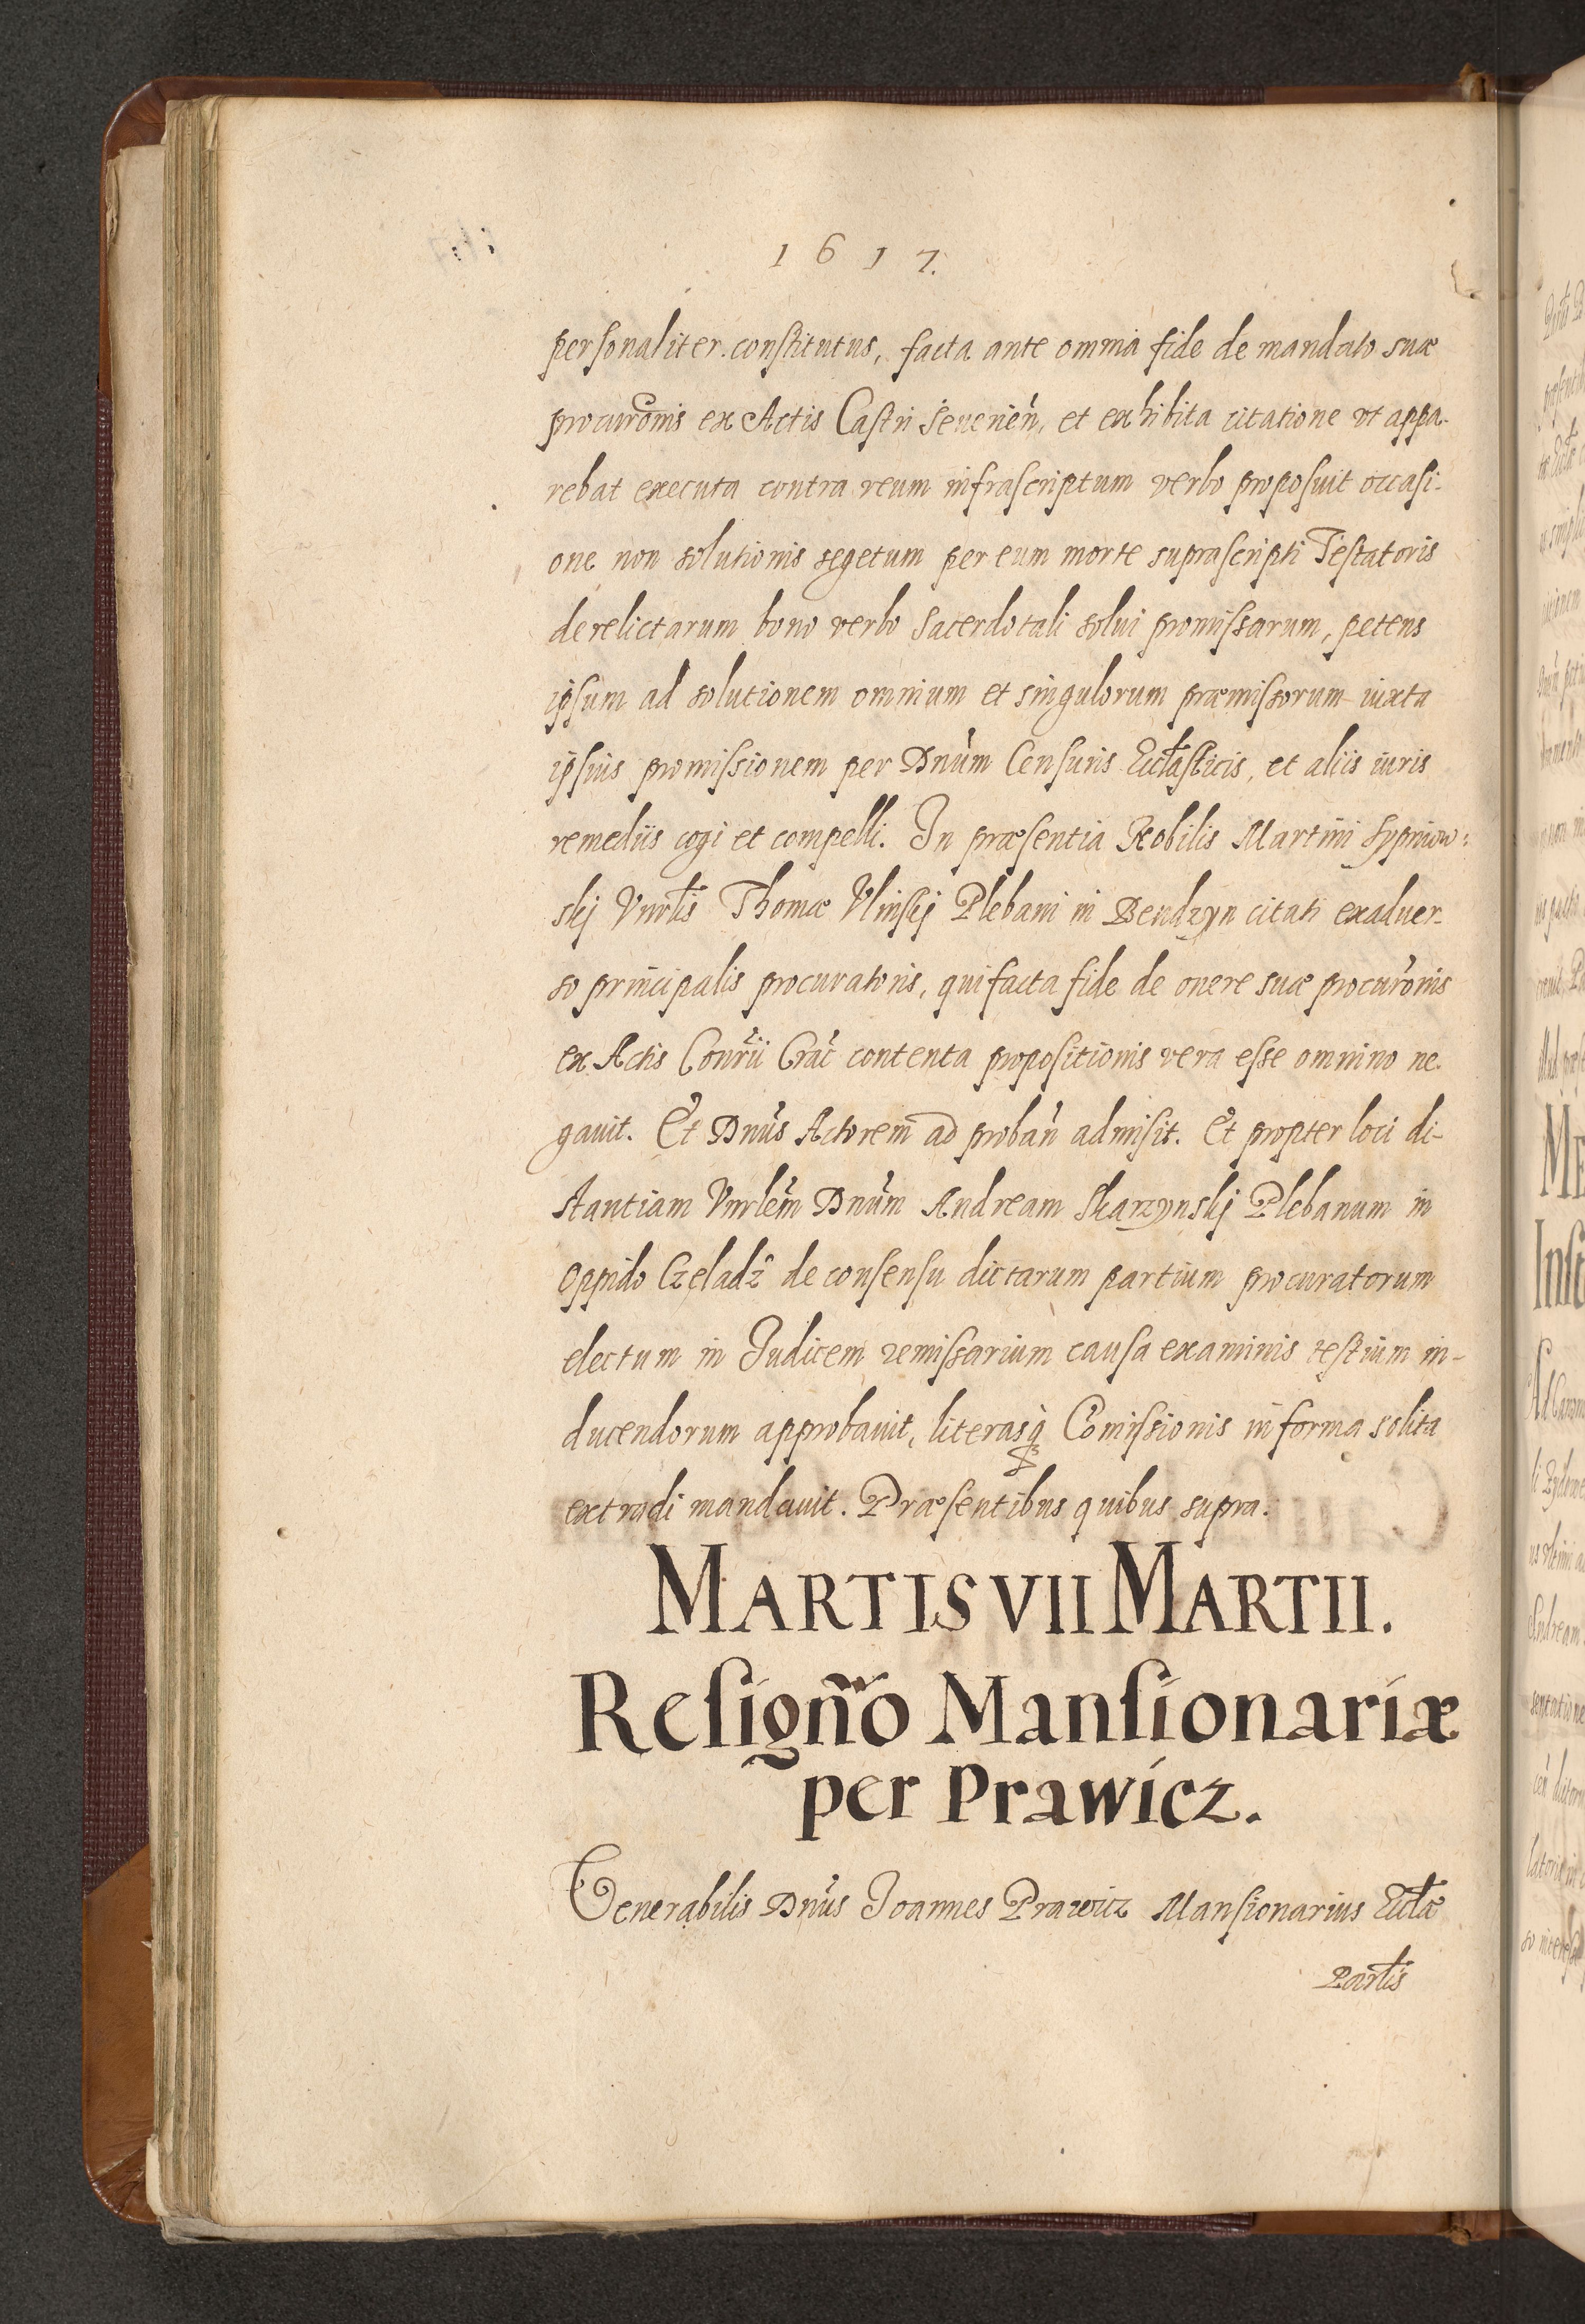 1617.
personaliter constitutus, facta ante omnia fide de mandato suæ
procuronis ex Actis Castri Seuerien̄, et exhibita citatione vt appa-
rebat executa contra reum infrascriptum verbo proposuit occasi-
one non solutionis segetum per eum morte suprascripti Testatoris
derelictarum bono verbo Sacerdotali solui promissarum, petens
ipsum ad solutionem omnium et singulorum præmissorum iuxta
ipsius promissionem per Dnum Censuris Ecclasticis, et aliis iuris
remediis cogi et compelli. In præsentia Nobilis Martini Sypniow:
skj Vnrlis Thomæ Vlinskj Plebani in Bendzyn citati exaduer-
so principalis procuratoris, qui facta fide de onere suæ procuronis
ex Actis Conrii Crac̄ contenta propositionis vera esse omnino ne-
gauit. Et Dnus Actorem ad proban̄ admisit. Et propter loci di-
stantiam Vnrlem Dnum Andream Skarzynskj Plebanum in
Oppido Czeladz de consensu dictarum partium procuratorum
electum in Judicem remissarium causa examinis testium in-
ducendorum approbauit, literasq̨ Com̄issionis in forma solita
extradi mandauit. Præsentibus quibus supra.
MARTIS VII MARTII.
Resign̄o Mansionariæ
per Prawicz.
Venerabilis Dnus Joannes Prawicz Mansionarius Ecclæ
Parlis